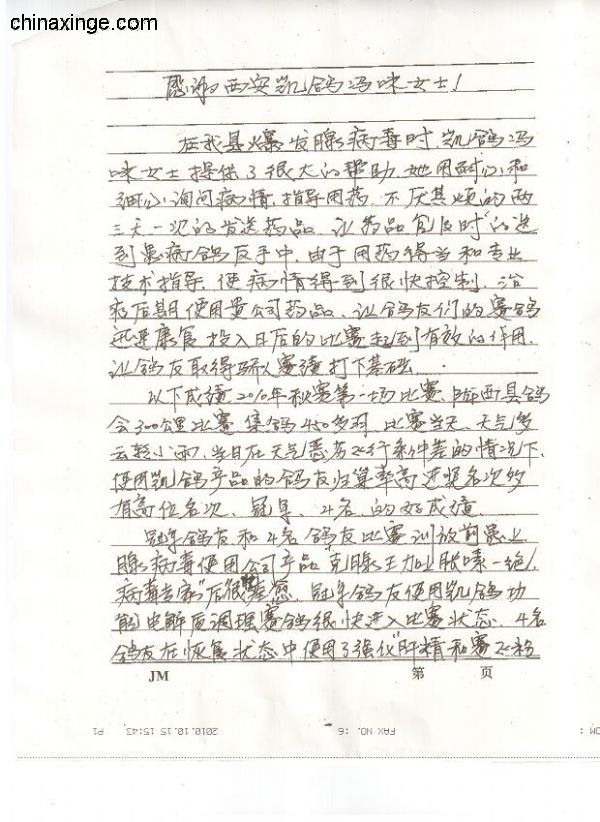 chinaxinge.com
感谢西安凯鸽冯咪女士!
在我县爆发腺病毒时,凯鸽冯
咪女士提供了很大的帮助,她用耐心和
细心询问病情,指导用药,不厌其烦的两
三天一次的发送药品,让药品及时的送
到患病鸽友手中,由于用药得当和专业
技术指导,使病情得到很快控制,治
愈后期使用贵公司药品,让鸽友们的赛鸽
迅速康复投入日后的比赛起到有效的作用,
让鸽友取得骄人赛绩打下基础.
以下成绩2010年秋赛第一场比赛,西县鸽
会300公里比赛,集鸽450多羽,比赛当天,天气多
云转小雨,当日在天气恶劣飞行条件差的情况下,
使用凯鸽产品的鸽友归巢率高进奖名次多
有高位名次,冠军、4名、的好成绩.
冠军鸽友和4名鸽友比赛训放前患上
腺病毒使用公司产品"克腺王加肽嗪一绝"
病毒专家"后很痊愈,冠军鸽友使用凯鸽功
能电解质调理赛鸽很快进入比赛状态,4名
鸽友在恢复状态中使用了强化"肝精和赛飞粉
JM 第 页
2010.10.15 15:43 FAX NO. :6 P1
OM :